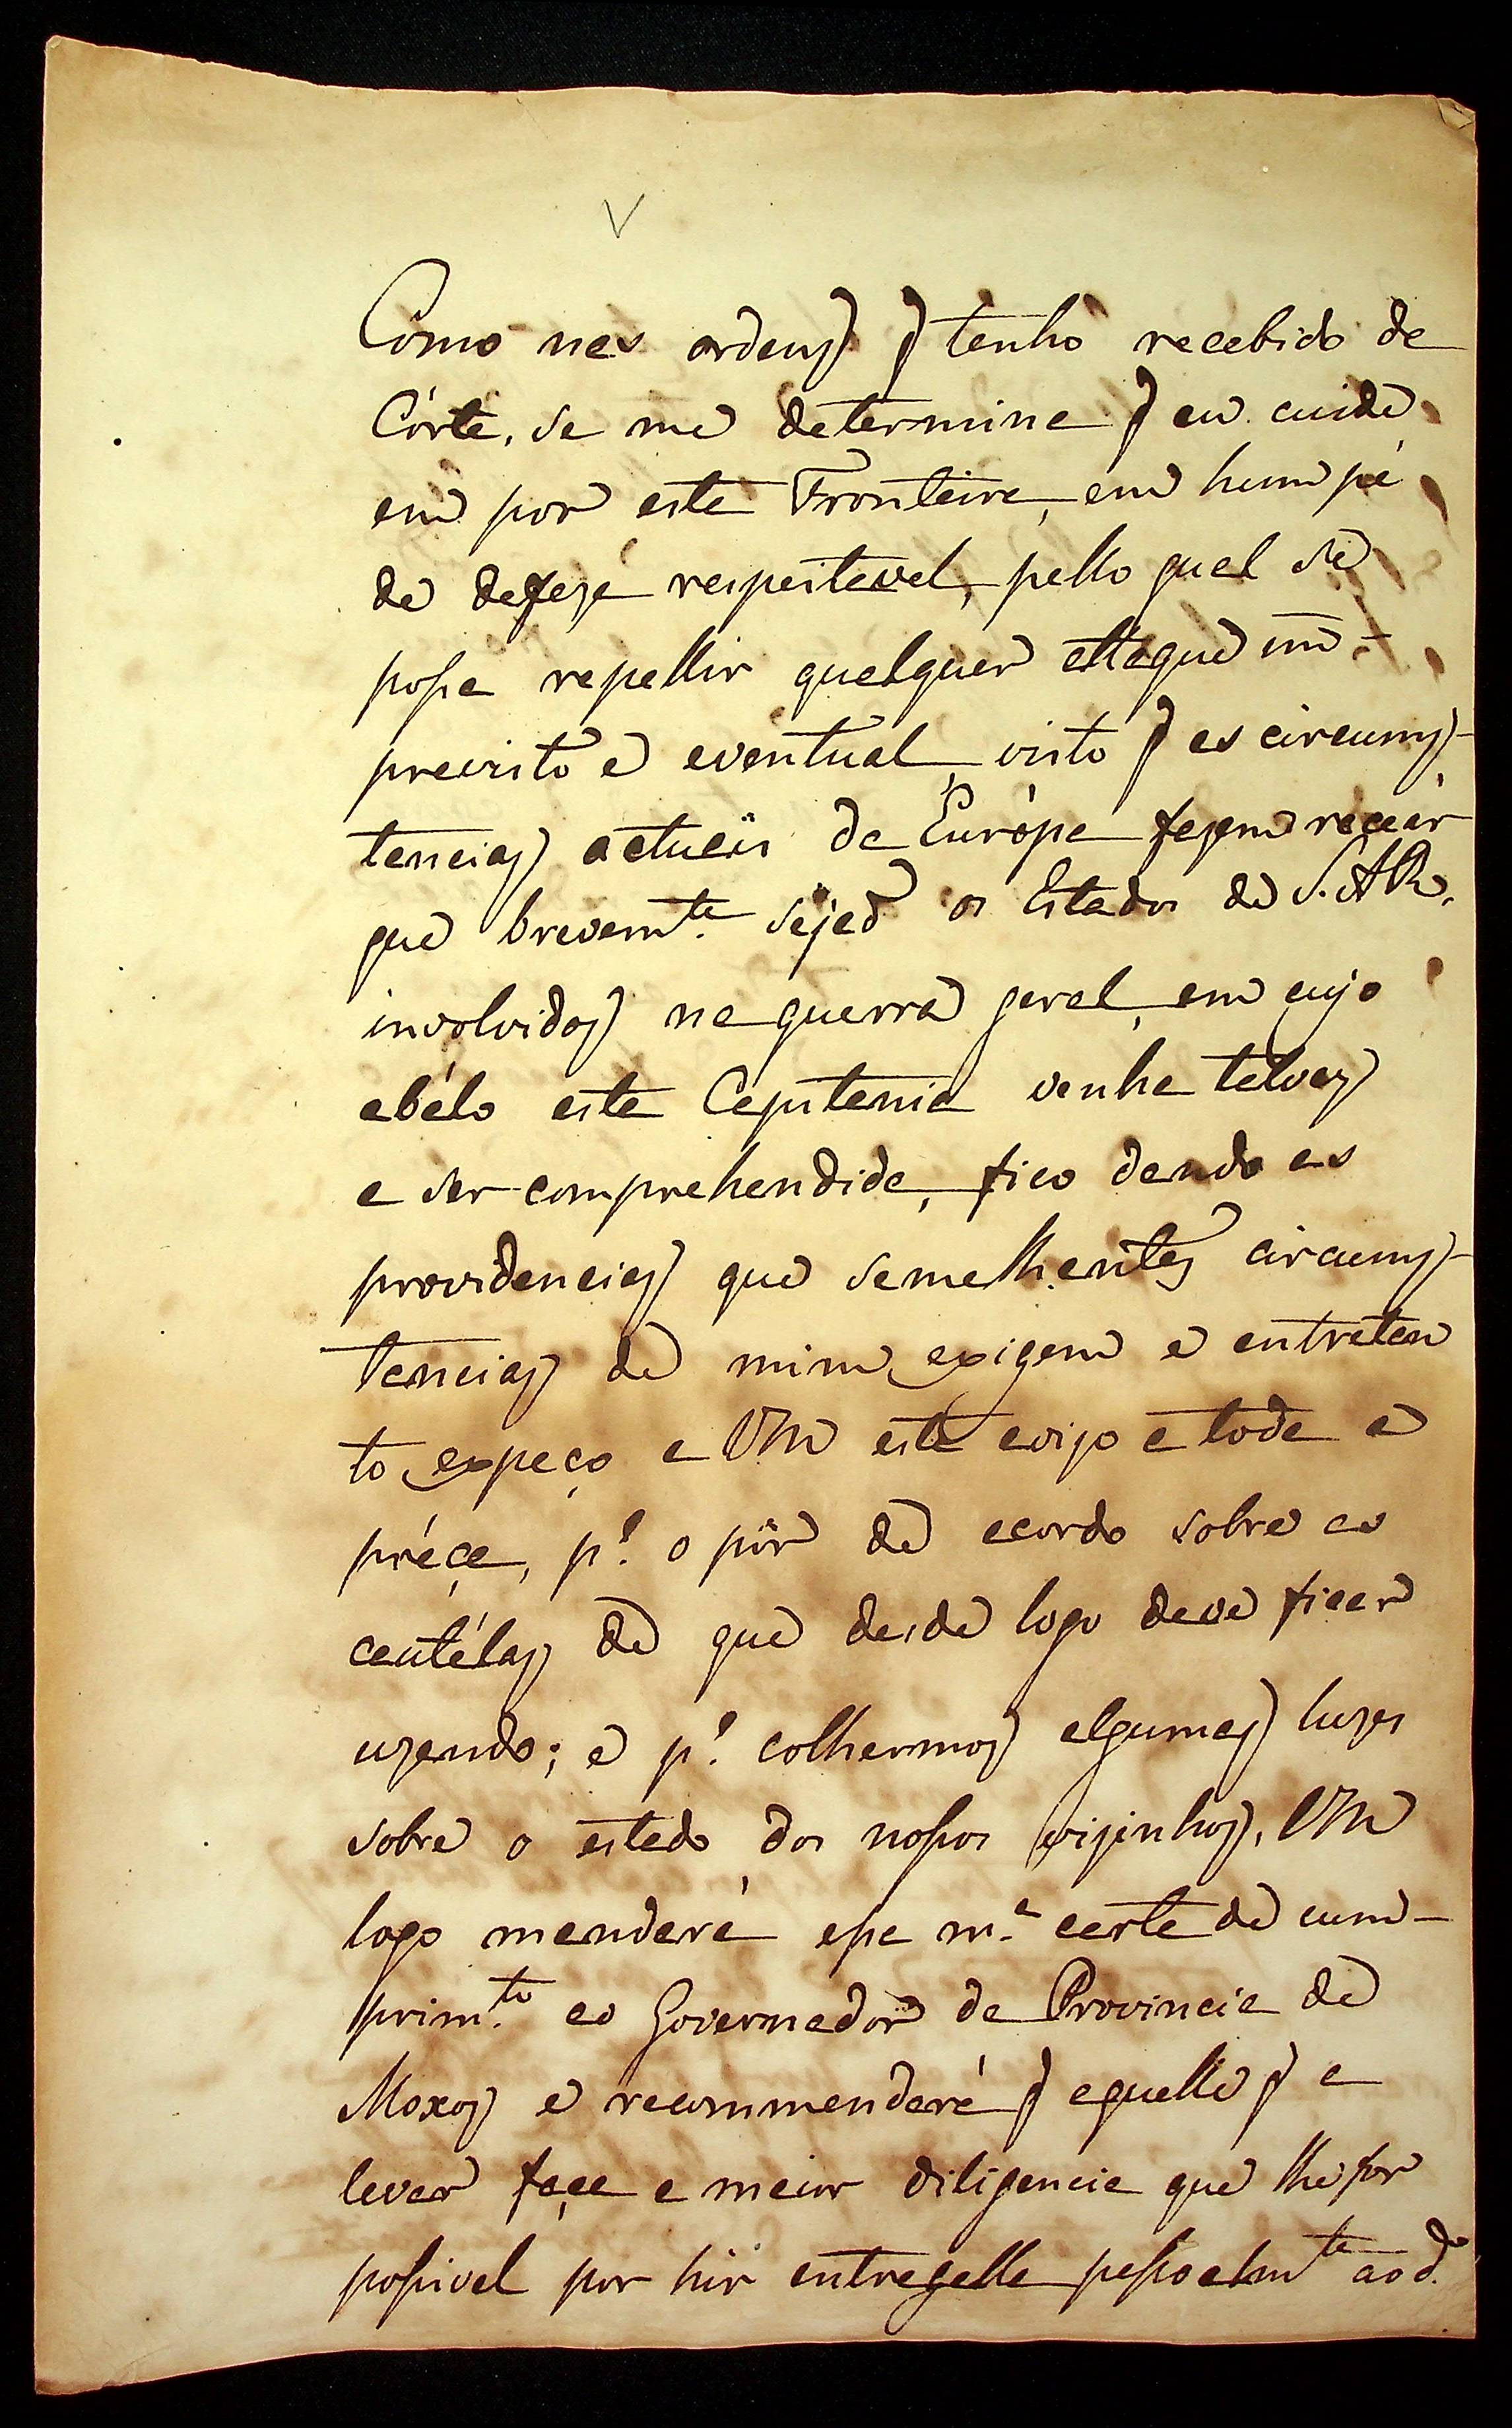 Como nas ordens q̃ tenho recebido da
Côrte, se me determina q̃ eu cuide
em por esta Fronteira, em hum pé
de defeza respeitavel, pello qual se
possa repellir qualquer attaque im-
previsto e eventual, visto q̃ as circums-
tancias actuáis da Európa fazem receár
que brevem.te sejaõ os Estados de S. A R.
involvidos na guerra geral, em cujo
abálo esta Capitania venha talvez
a ser comprehendida, fico dando as
providencias que semelhantes circums-
tancias de mim exigem e entretan
to expeço a VM este avizo a toda a
préça, p.ª o pôr de acordo sobre as
cautélas de que desde logo deve ficar
uzando; e p.ª colhermos algumas luzes
sobre o estado dos nossos vizinhos, VM
logo mandará essa m.ª carta de cum-
prim.to ao Governador da Provincia de
Moxos e recommendará q̃ aquelle q̃ a
levar faça a maior diligencia que lhe for
possivel por hir entregalla pessoalm.te ao d.º